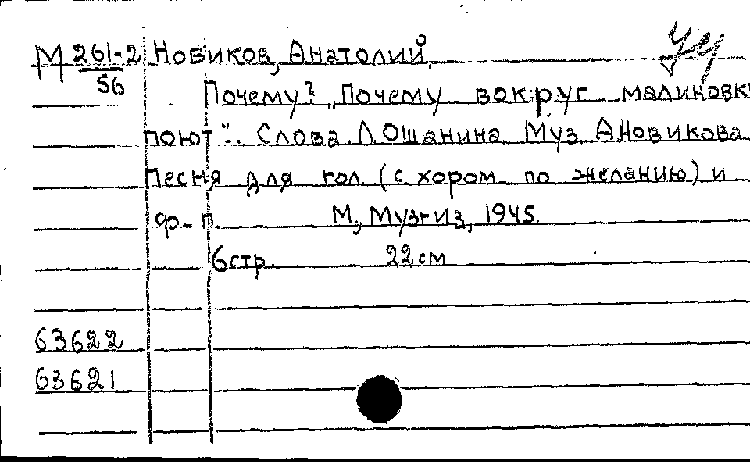 М 261-2 Новиков, Анатолий.
56
Почему? „Почему вокруг малиновки
поют". Слова Л. Ошанина Муз. А Новикова
Песня для гол. (с хором по желанию) и
ф-п. М., Музгиз, 1945.
6 стр. 22 см
63622
63621